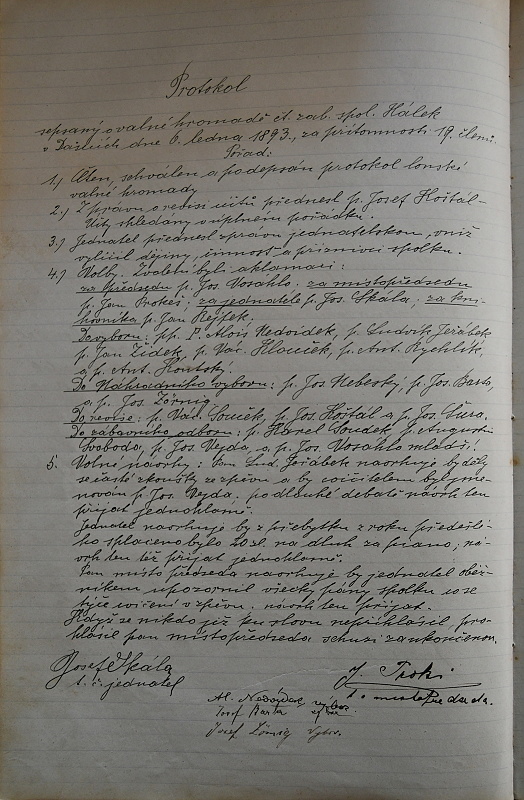 Protokol
sepsaný o valné hromadě čt. zab. spol. Hálek
v Dašicích dne 6. ledna 1893, za přítomnosti 19. členů.
Pořad:
1.) Čten, schválen a podepsán protokol lonské
valné hromady
2.) Zprávu o revisi účtů přednesl p. Josef Hoštál-
Účty shledány v úplném pořádku.
3.) Jednatel přednesl zprávu jednatelskou, v níž
vylíčil dějiny, činnost a příznivci spolku.
4.) Volby. Zvoleni byli aklamací:
za předsedu p. Jos. Vosahlo, za místopředsedu
p. Jan Prokeš, za jednatele p. Jos. Skála, za kni-
hovníka p. Jan Rejfek.
Do výboru: pp. P. Alois Nedvídek, p. Ludvík Jeřábek
p. Jan Žídek, p. Vác. Hlouček, p. Ant. Rychlík,
a p. Ant. Horský.
Do Náhradního výboru: p. Jos. Nebeský, p. Jos. Barta
a p. Jos. Zörnig.
Do revise: p. Vác. Souček, p. Jos. Hoštál a p. Jos. Čura.
Do zábavního odboru: p. Karel Soudek, p. Augustin
Svoboda, p. Jos. Vejda a p. Jos. Vosahlo mladší.
5. Volné návrhy: Pan Lud. Jeřábek navrhuje by děly
se časté zkoušky ze zpěvu a by cvičitelem byl jme-
nován p. Jos. Vejda, po dlouhé debatě návrh ten
přijat jednohlasně.
Jednatel navrhuje by z přebytku z roku předešlé-
ho splaceno bylo 20 zl. na dluh za piano; ná-
vrh ten též přijat jednohlasně.
Pan místopředseda navrhuje by jednatel oběž-
níkem upozornil všecky pány spolku co se
týče cvičení v zpěvu, návrh ten přijat.
Když se nikdo již ku slovu nepřihlásil, pro-
hlásil pan místopředseda schůzi za ukončenou.
Josef Skála
t. č. jednatel
místopředseda.
Al. Nedvídek výbor
Josef Barta
Josef Zörnig výbor.